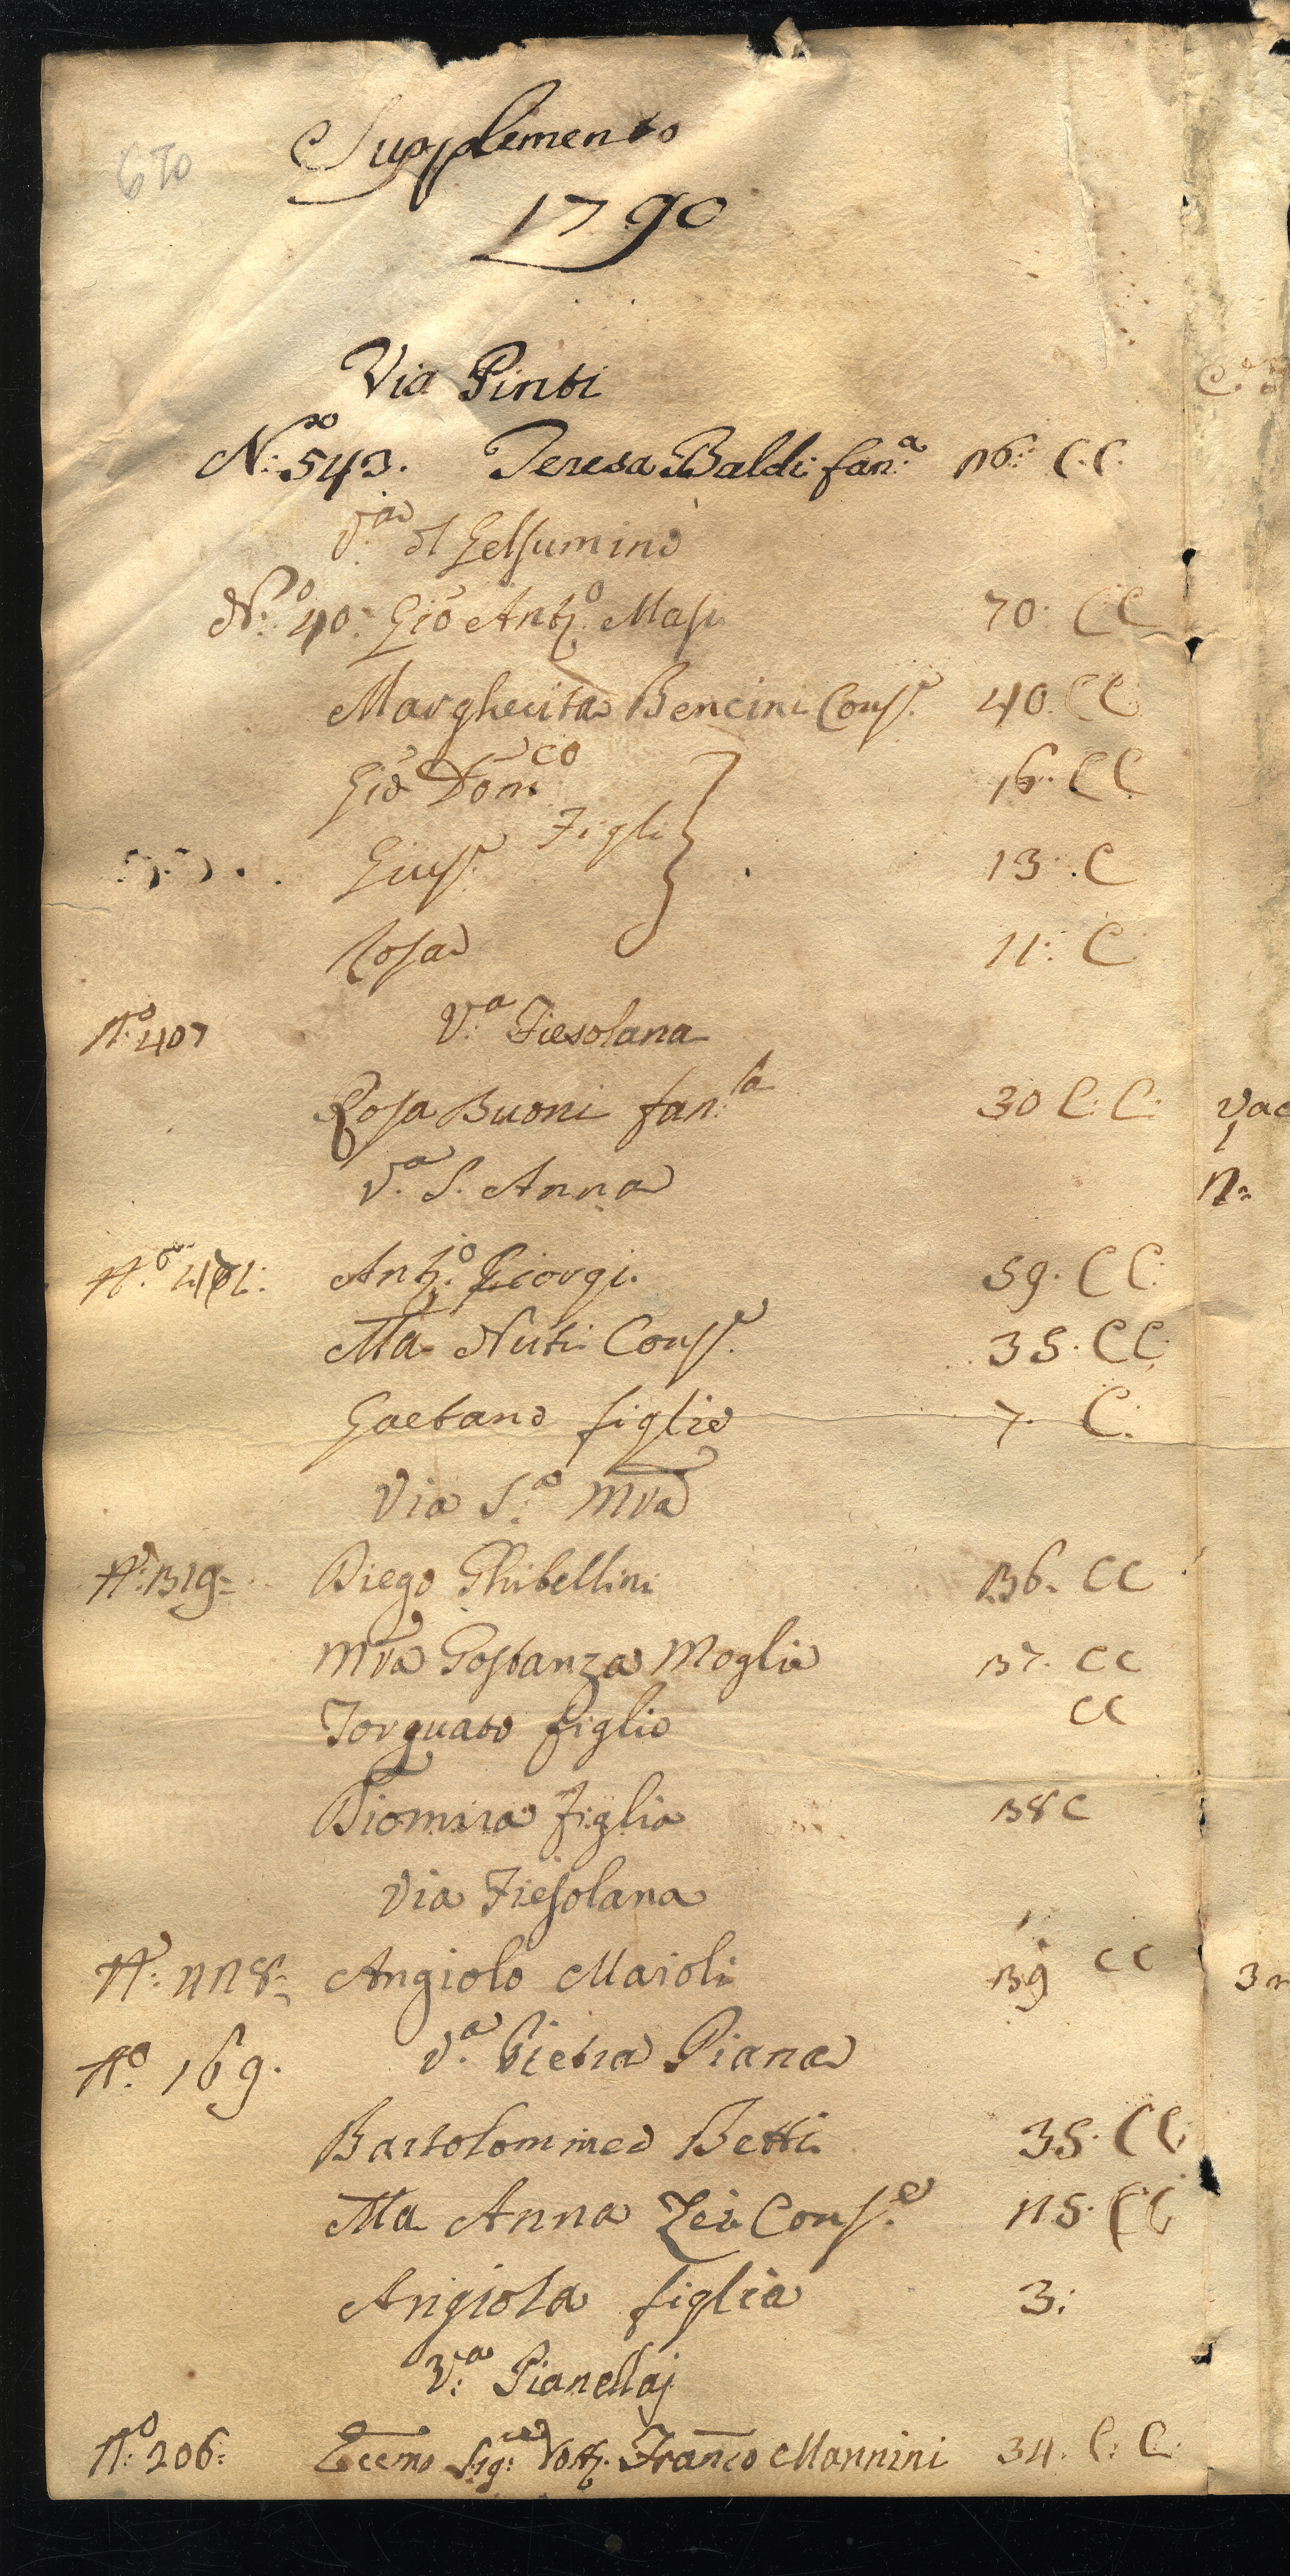 670
Supplemento
1790
Via Pinti
N:º 543. Teresa Baldi fan:ª 26: C.C.
V:ª dl Gelsumino
N:º 40: Gio Antº: Masi 70. CC
Margherita Bencini Cons.e 40. CC
Gio Domco 16. CC
Figli
Gius.e 13. C
Rosa 11: C
N:º 407 V:ª Fiesolana
Rosa Buoni fan:la 30 C: C:
V.ª S. Anna
N.º Antº: Giorgi. 59. CC:
Ma Nuti Cons.e 35. CC
Gaetano figlio 7. C:
Via S:ª Mra
N: 319= Diego Ghibellini 36. CC
Mra Gostanza Moglie 37. CC
Torquato figlio CC
Diomira figlia 38 C
Via Fiesolana
N: 428= Angiolo Maioli 39 CC
Nº. 169. V.ª Pietra Piana
Bartolommeo Betti 35. CC
Ma Anna Zei Cons.e 25. CC
Angiola figlia 3:
V:ª Pianellaj
N:º 206: Eccmo Sig:re Dott. Franco Mannini 34. C: C: